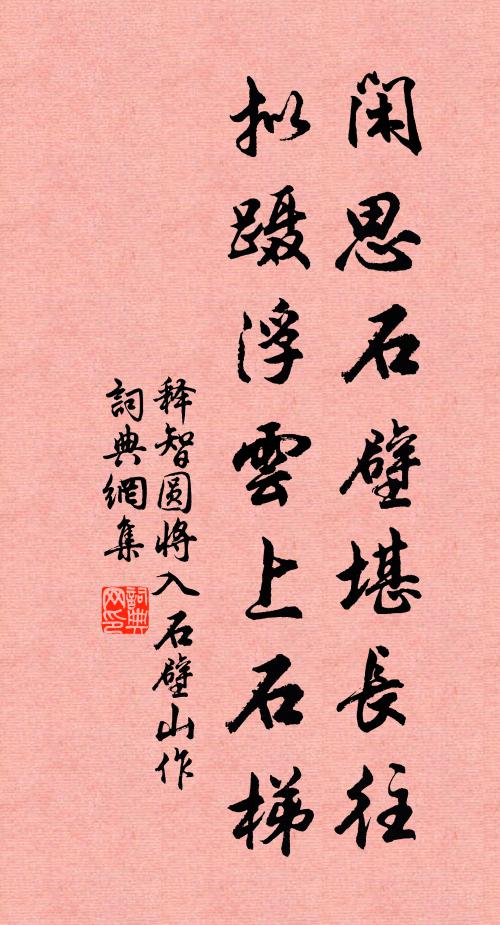 闲思石壁堪長往
拟蹑浮雲上石梯
释智圆将入石壁山作
詞典網集
詞典
网印